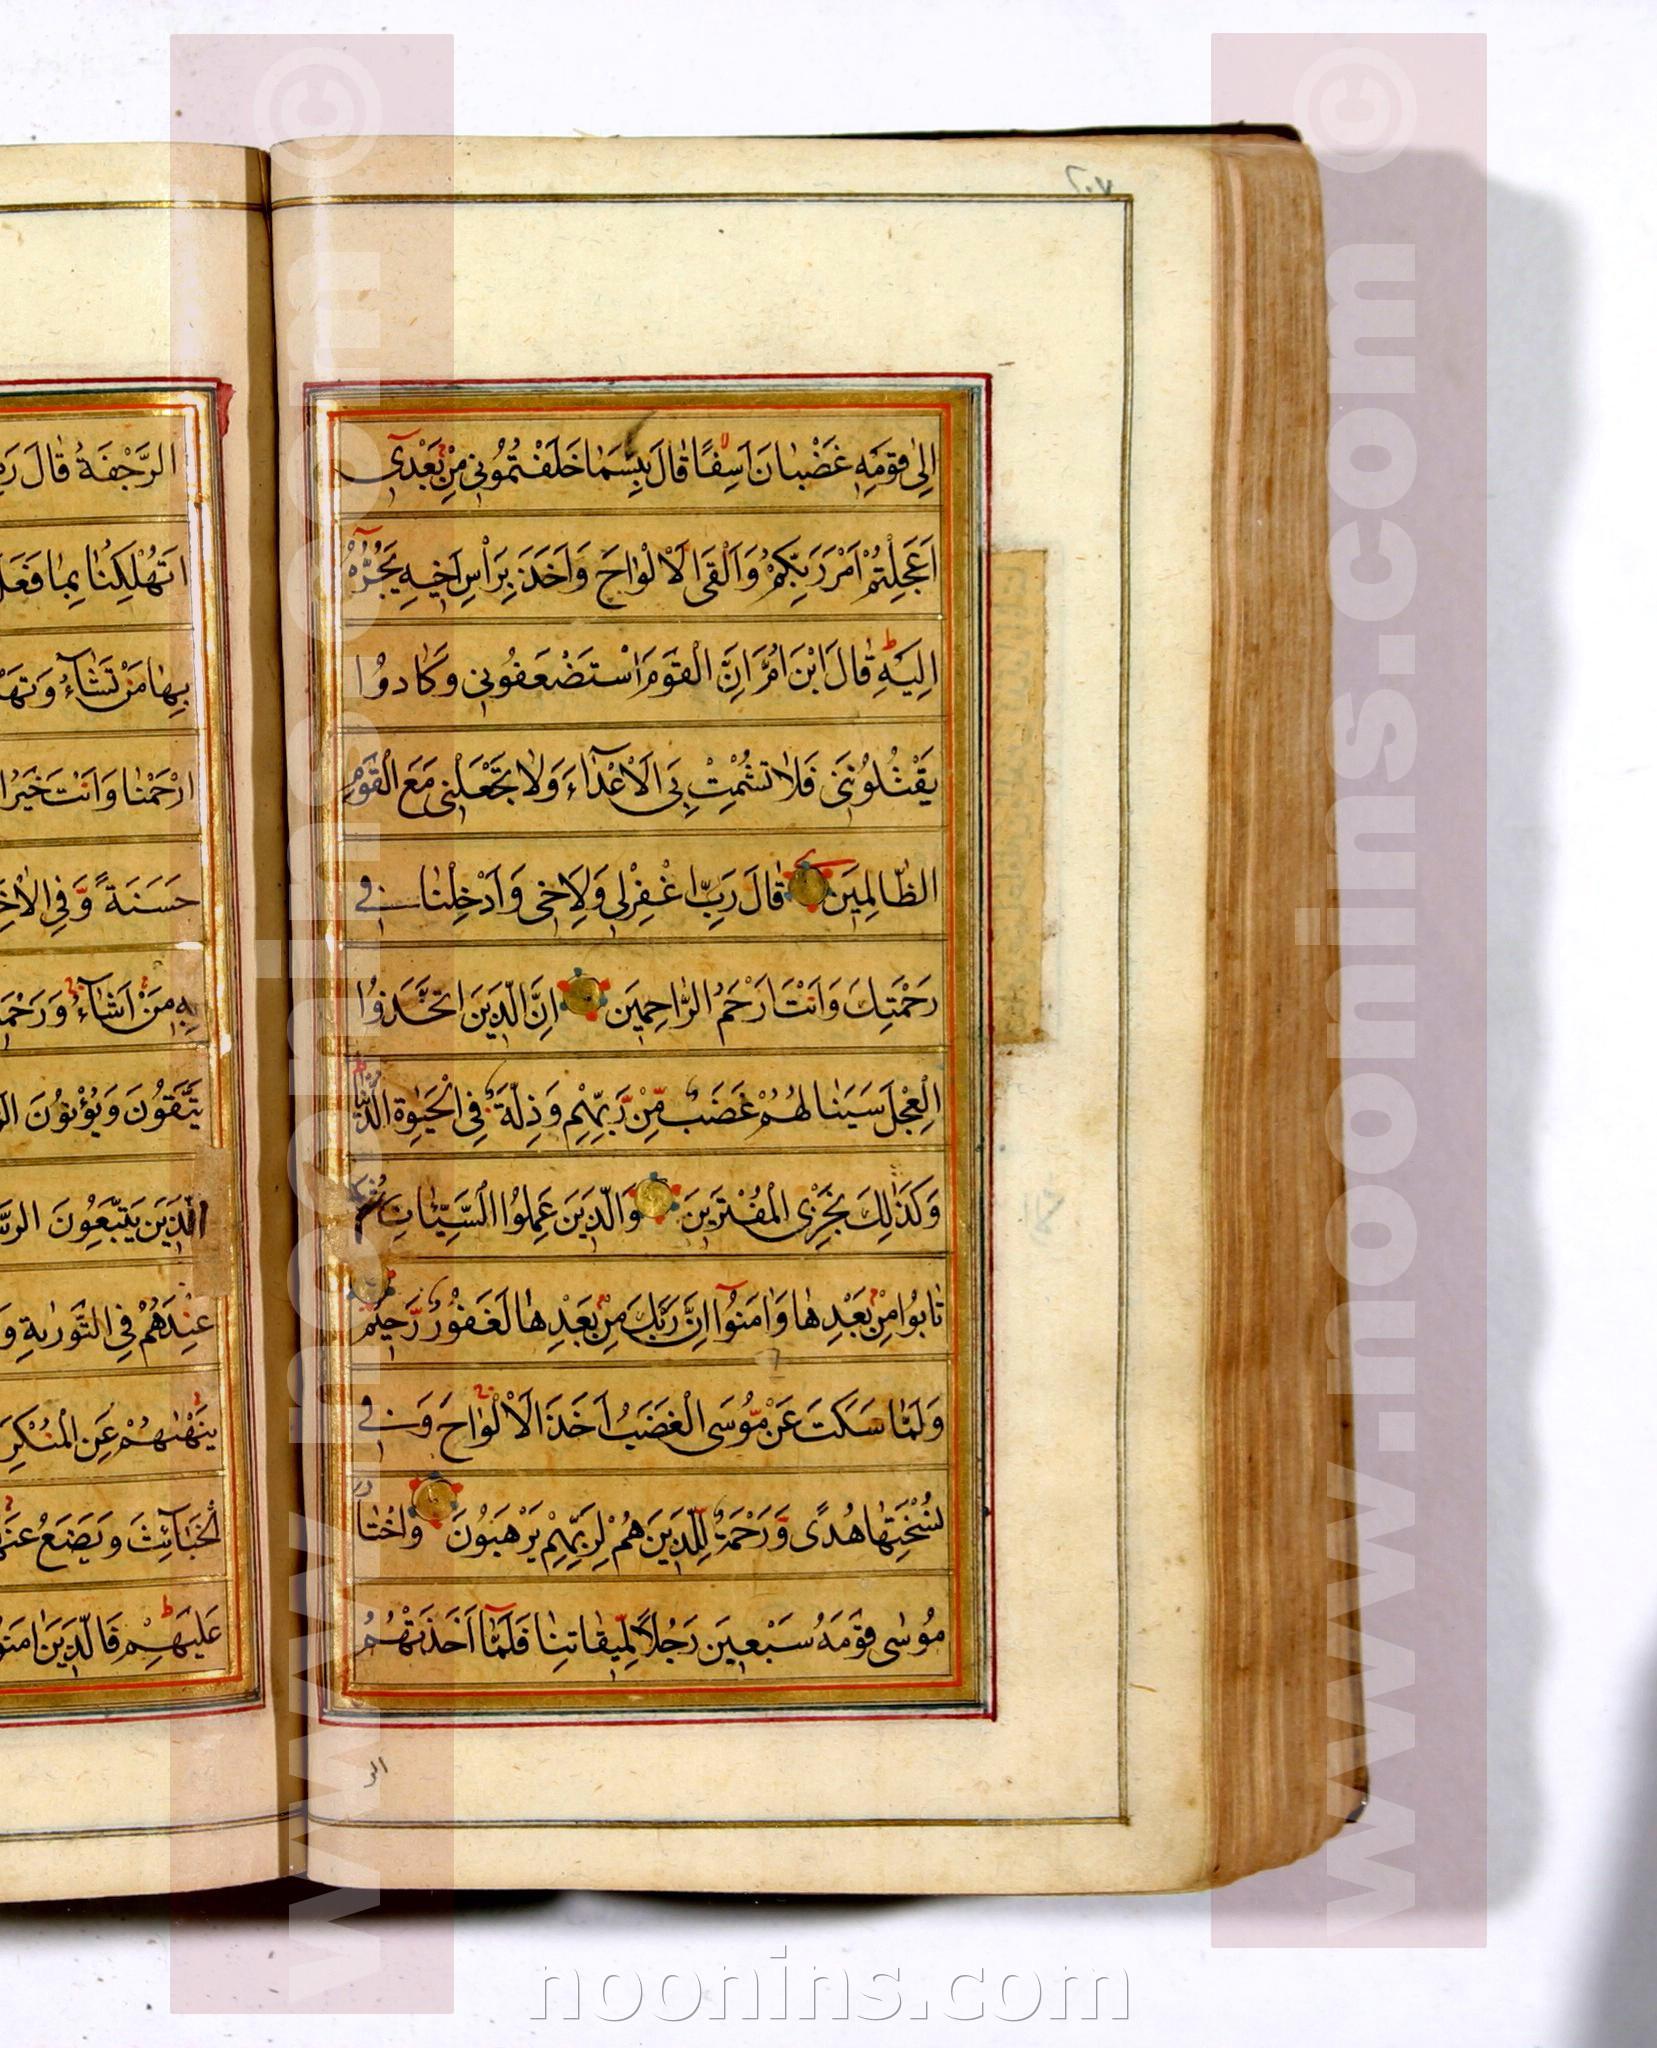 ٢٠٧
اِلىٰ قَوْمِهٖ غَضْبٰانَ اَسِفًا قٰالَ بِئْسَمٰا خَلَفْتُمُوني مِنْ بَعْدٖي
اَعَجِلْتُمْ اَمْرَ رَبِّكُمْ وَاَلْقَى الْاَلْوٰاحَ وَاَخَذَ بِرَأْسِ اَخيهِ يَجُرُّهُ
اِلَيْهِ قٰالَ ابْنَ اُمَّ اِنَّ الْقَوْمَ اسْتَضْعَفُوني وَكٰادُوا
يَقْتُلُونَني فَلٰا تُشْمِتْ بِيَ الْاَعْدٰاءَ وَلٰا تَجْعَلْني مَعَ الْقَوْمِ
الظّٰالِمينَ قٰالَ رَبِّ اغْفِرْ لي وَلِاَخي وَاَدْخِلْنٰا في
رَحْمَتِكَ وَاَنْتَ اَرْحَمُ الرّٰاحِمينَ اِنَّ الَّذينَ اتَّخَذُوا
الْعِجْلَ سَيَنٰالُهُمْ غَضَبٌ مِنْ رَبِّهِمْ وَذِلَّةٌ فِي الْحَيٰوةِ الدُّنْيٰا
وَكَذٰلِكَ نَجْزِي الْمُفْتَرينَ وَالَّذينَ عَمِلُوا السَّيِّئٰاتِ ثُمَّ
تٰابُوا مِنْ بَعْدِهٰا وَاٰمَنُوٓا اِنَّ رَبَّكَ مِنْ بَعْدِهٰا لَغَفُورٌ رَحيمٌ
وَلَمّٰا سَكَتَ عَنْ مُوسَى الْغَضَبُ اَخَذَ الْاَلْوٰاحَ وَفي
نُسْخَتِهٰا هُدًى وَرَحْمَةٌ لِلَّذينَ هُمْ لِرَبِّهِمْ يَرْهَبُونَ وَاخْتٰارَ
مُوسٰى قَوْمَهُ سَبْعينَ رَجُلًا لِميقٰاتِنٰا فَلَمّٰٓا اَخَذَتْهُمُ
الر
الرَّجْفَةُ قٰالَ رَبِّ
اَتُهْلِكُنٰا بِمٰا فَعَلَ
بِهٰا مَنْ تَشٰٓاءُ وَتَهْ
ارْحَمْنٰا وَاَنْتَ خَيْرُ ا
حَسَنَةً وَفِي الْاٰخِ
بِهٖ مَنْ اَشٰٓاءُ وَرَحْمَ
يَتَّقُونَ وَيُؤْتُونَ ال
الَّذينَ يَتَّبِعُونَ الرَّ
عِنْدَهُمْ فِي التَّوْرٰيةِ وَ
يَنْهٰيهُمْ عَنِ الْمُنْكَرِ
الْخَبٰٓائِثَ وَيَضَعُ عَنْهُ
عَلَيْهِمْ فَالَّذينَ اٰمَنُو
www.noonins.com ©
www.noonins.com ©
noonins.com